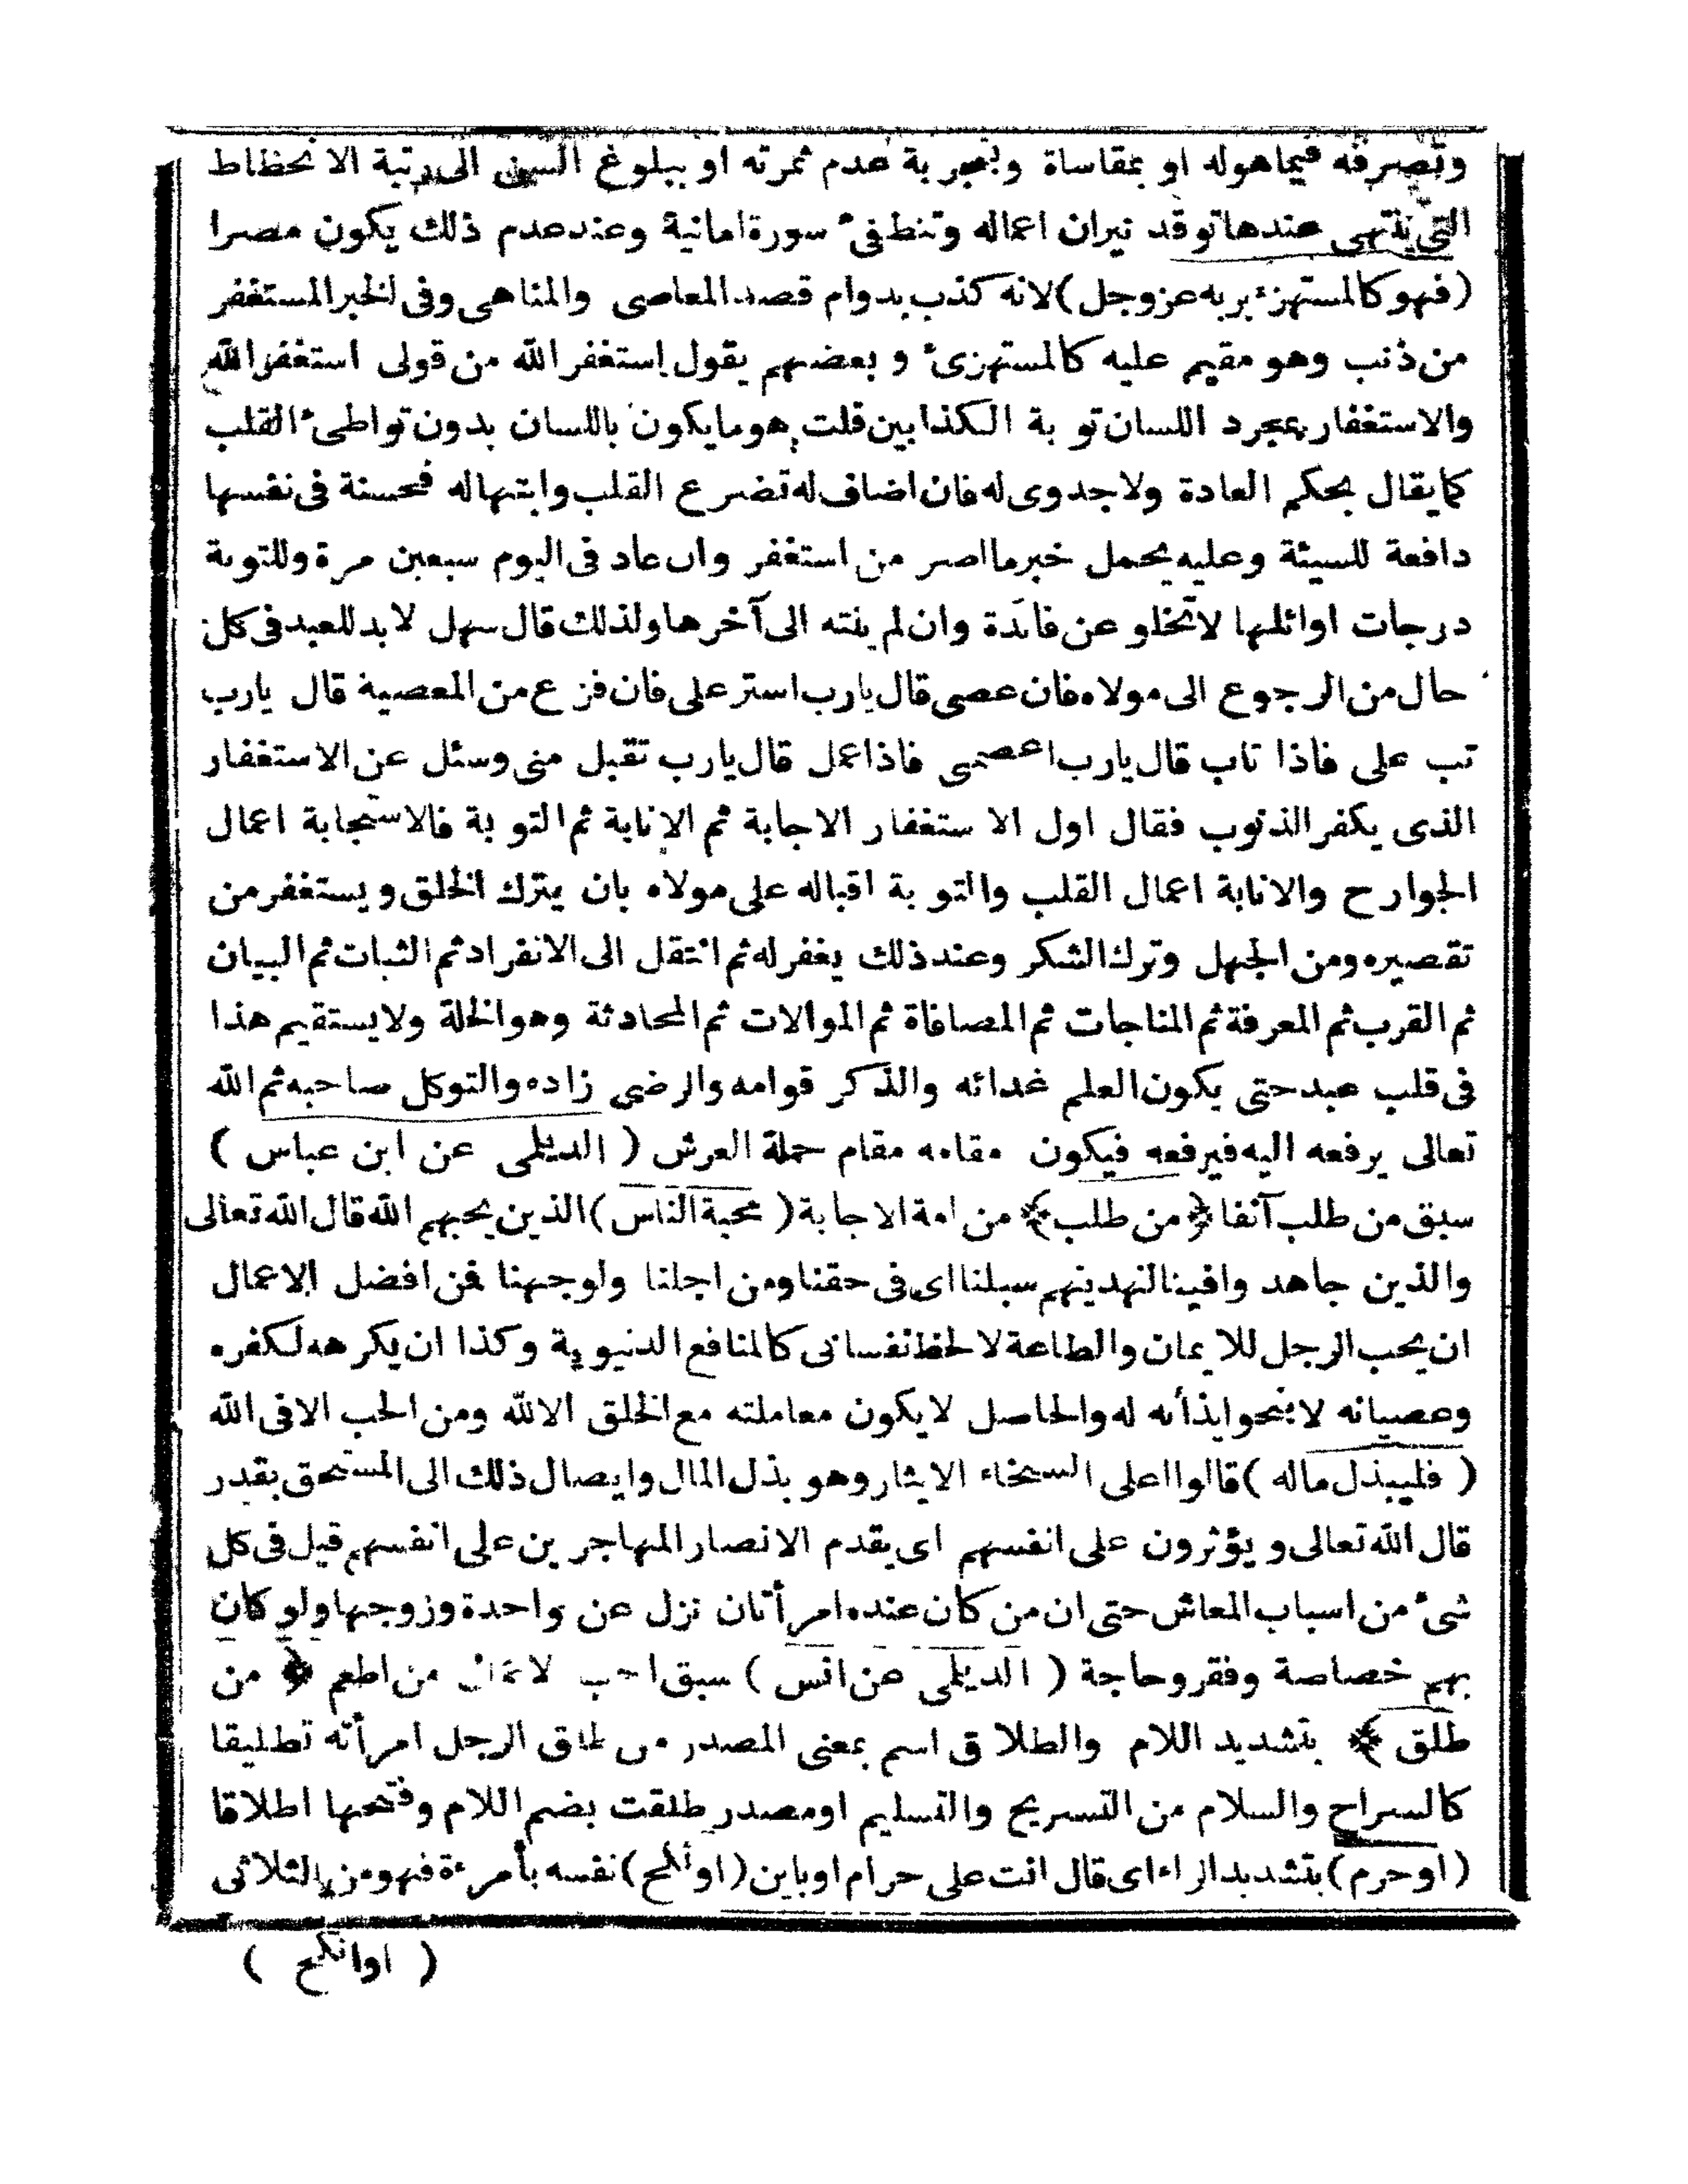 وتصرفه فيما هوله او بمقاساة وبتجربة عدم ثمرته او ببلوغ السن الى رتبة الانحطاط
التى ينتهى عندها توقد نيران اعماله وتنطفئ سورة امانية وعند عدم ذلك يكون مصرا
(فهو كالمستهزء بربه عزوجل) لانه كذب بدوام قصد المعاصى والمناهى وفى الخبر المستغفر
من ذنب وهو مقيم عليه كالمستهزئ و بعضهم يقول استغفر الله من قولى استغفر الله
والاستغفار بمجرد اللسان توبة الكذابين قلت هو ما يكون باللسان بدون تواطئ القلب
كما يقال بحكم العادة ولا جدوى له فان اضاف له تضرع القلب وابتهاله فحسنة فى نفسها
دافعة للسيئة وعليه يحمل خبر ما اصر من استغفر وان عاد فى اليوم سبعين مرة وللتوبة
درجات اوائلها لا تخلو عن فائدة وان لم ينته الى آخرها ولذلك قال سهل لا بد للعبد فى كل
حال من الرجوع الى مولاه فان عصى قال يارب استر على فان فزع من المعصية قال يارب
تب على فاذا تاب قال يارب اعصمى فاذا عمل قال يارب تقبل منى وسئل عن الاستغفار
الذى يكفر الذنوب فقال اول الاستغفار الاجابة ثم الانابة ثم التوبة فالاستجابة اعمال
الجوارح والانابة اعمال القلب والتوبة اقباله على مولاه بان يترك الخلق ويستغفر من
تقصيره ومن الجهل وترك الشكر وعند ذلك يغفر له ثم انتقل الى الانفراد ثم الثبات ثم البيان
ثم القرب ثم المعرفة ثم المناجات ثم المصافاة ثم الموالات ثم المحادثة وهو الخلة ولا يستقيم هذا
فى قلب عبد حتى يكون العلم غدائه والذكر قوامه والرضى زاده والتوكل صاحبه ثم الله
تعالى يرفعه اليه فيرفعه فيكون مقامه مقام حملة العرش ( الديلمى عن ابن عباس )
سبق من طلب آنفا ﴿ من طلب ﴾ من امة الاجابة ( محبة الناس ) الذين يحبهم الله قال الله تعالى
والذين جاهدوا فينا لنهدينهم سبلنا اى فى حقنا ومن اجلنا ولوجهنا فمن افضل الاعمال
ان يحب الرجل للايمان والطاعة لا لحظ نفسانى كالمنافع الدنيوية وكذا ان يكرهه لكفره
وعصيانه لا بنحو ايذائه له والحاصل لا يكون معاملته مع الخلق الا لله ومن الحب الا فى الله
( فليبذل ماله ) قالوا اعلى السخاء الايثار وهو بذل المال وايصال ذلك الى المستحق بقدر
قال الله تعالى و يؤثرون على انفسهم اى يقدم الانصار المهاجرين على انفسهم قيل فى كل
شئ من اسباب المعاش حتى ان من كان عنده امرأتان نزل عن واحدة وزوجها ولو كان
بهم خصاصة وفقر وحاجة ( الديلمى عن انس ) سبق احب من اطعم ﴿ من
طلق ﴾ بتشديد اللام والطلاق اسم بمعنى المصدر من طلق الرجل امرأته تطليقا
كالسراح والسلام من التسريح والتسليم او مصدر طلقت بضم اللام وفتحها اطلاقا
( او حرم ) بتشديد الراء اى قال انت على حرام او باين ( او نكح ) نفسه بأمرءة فهو من الثلاثى
( او انكح )